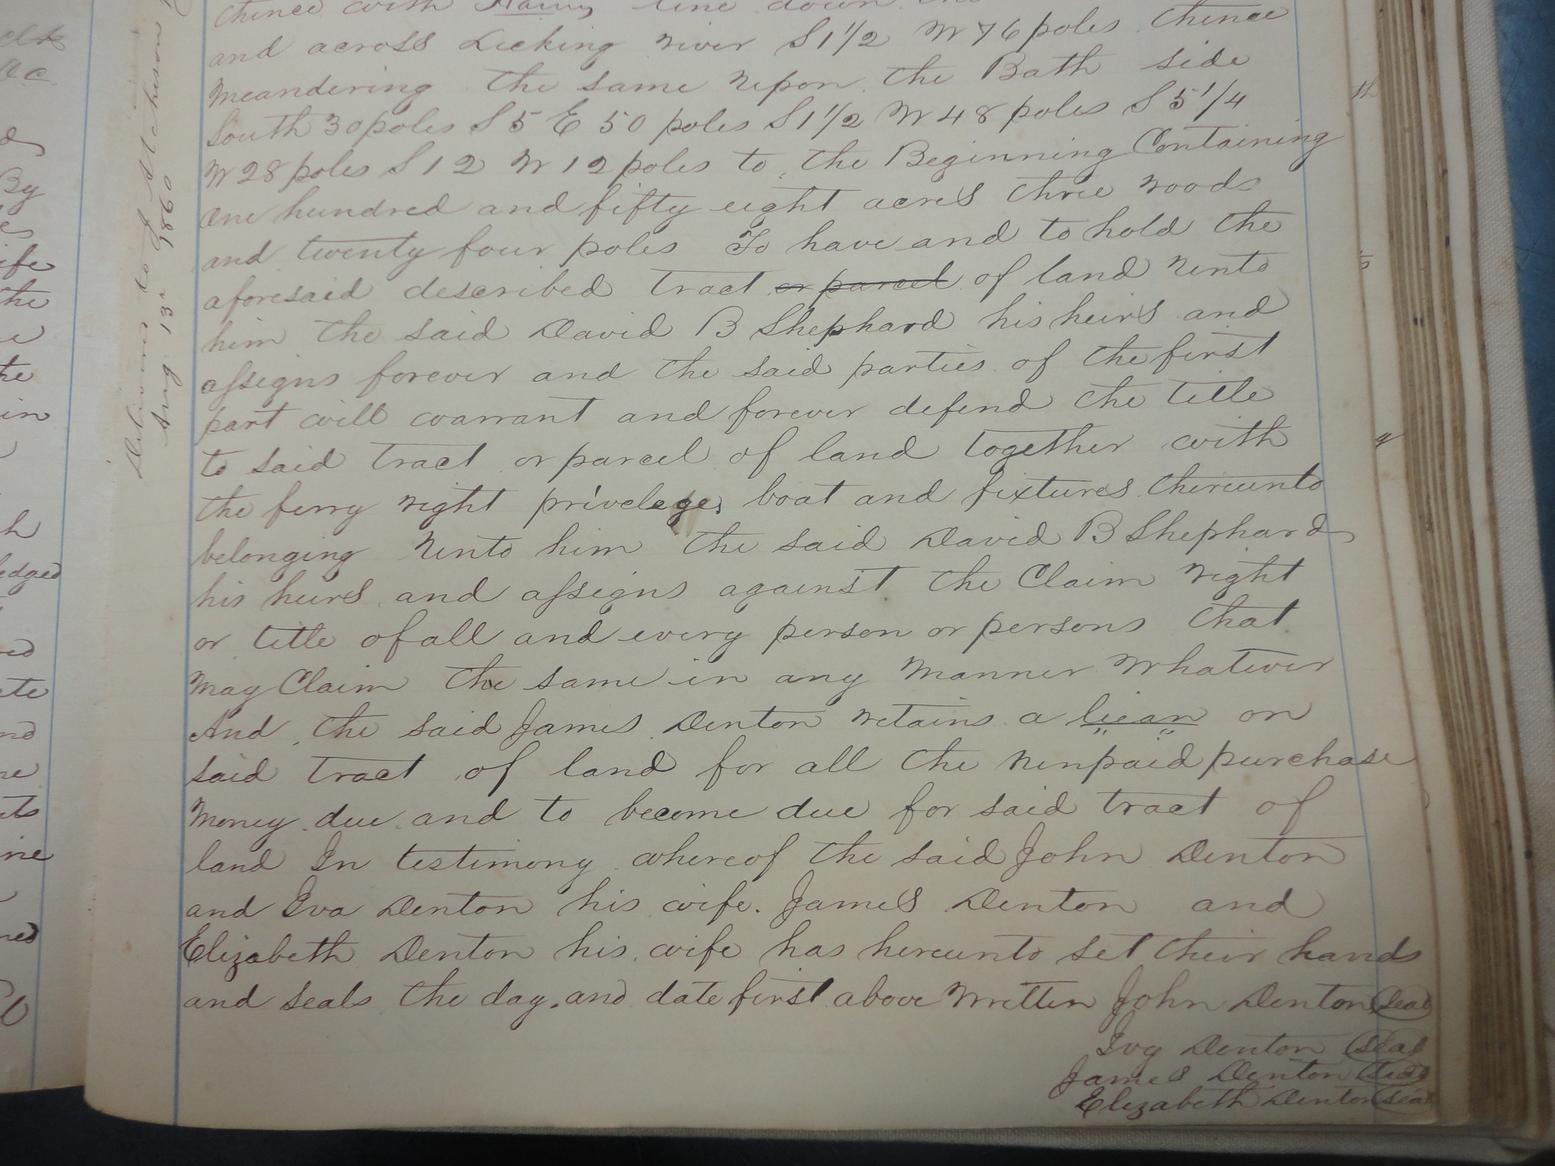 thence with Hains line down the
and across Licking river S 1 1/2 W 76 poles thence
meandering the same upon the Bath side
South 30 poles S 5 E 50 poles S 1 1/2 W 48 poles S 5 1/4
W 28 poles S 12 W 12 poles to the Beginning Containing
one hundred and fifty eight acres three roods
and twenty four poles To have and to hold the
aforesaid described tract or parcel of land unto
him the said David B Shephard his heirs and
assigns forever and the said parties of the first
part will warrant and forever defend the title
to said tract or parcel of land together with
the ferry right priveleges boat and fixtures thereunto
belonging unto him the said David B Shephard
his heirs and assigns against the Claim right
or title of all and every person or persons that
may Claim the same in any manner whatever
And the said James Denton retains a liean on
said tract of land for all the unpaid purchase
money due and to become due for said tract of
land In testimony whereof the said John Denton
and Iva Denton his wife. James Denton and
Elizabeth Denton his wife has hereunto set their hands
and seals the day and date first above written John Denton Seal
Ivy Denton Seal
James Denton Seal
Elizabeth Denton Seal
Delivered to J Atcheson
Aug 13th 1860